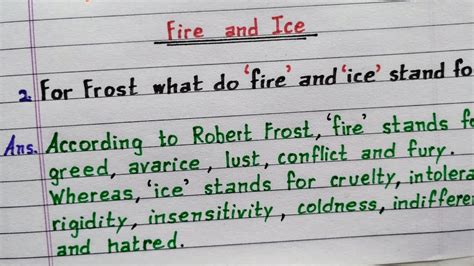 Fire and Ice
2. For Frost what do 'fire' and 'ice' stand fo
Ans. According to Robert Frost, 'fire' stands f
greed, avarice, lust, conflict and fury.
Whereas, 'ice' stands for cruelty, intolera
rigidity, insensitivity, coldness, indiffere
and hatred.